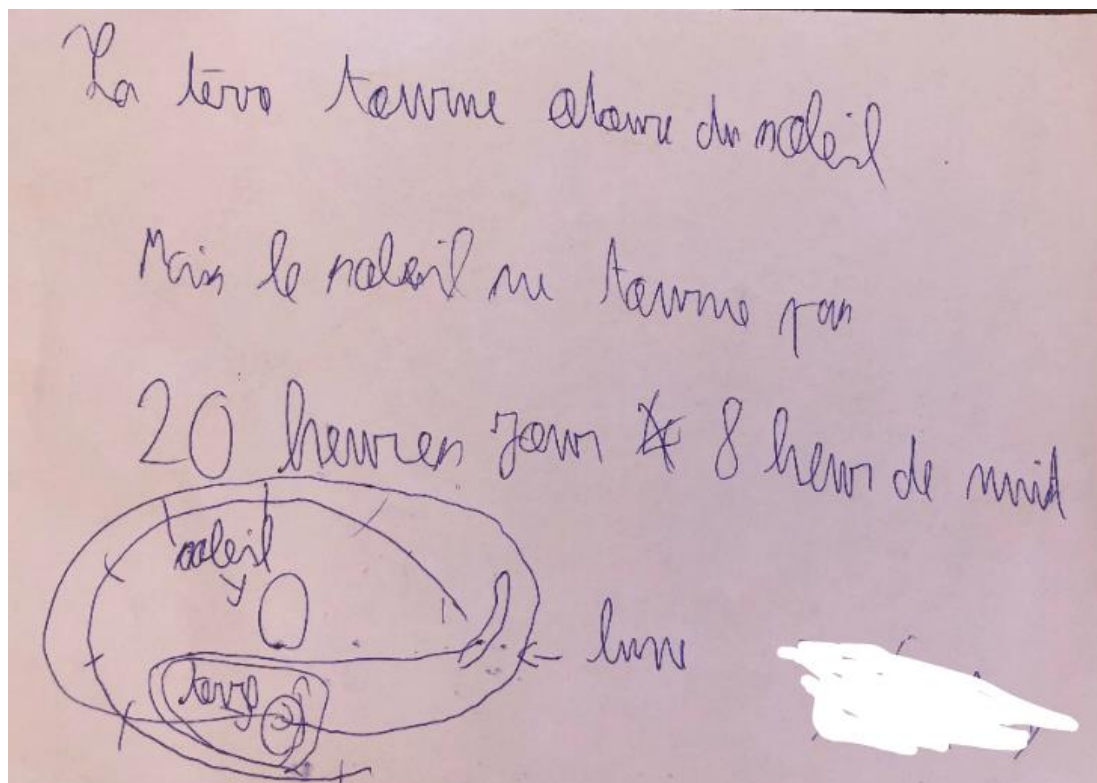 La tère tourne atoure du soleil
Mais le soleil ne tourne pas
20 heures jour 8 heur de nuid
soleil
lune
tère